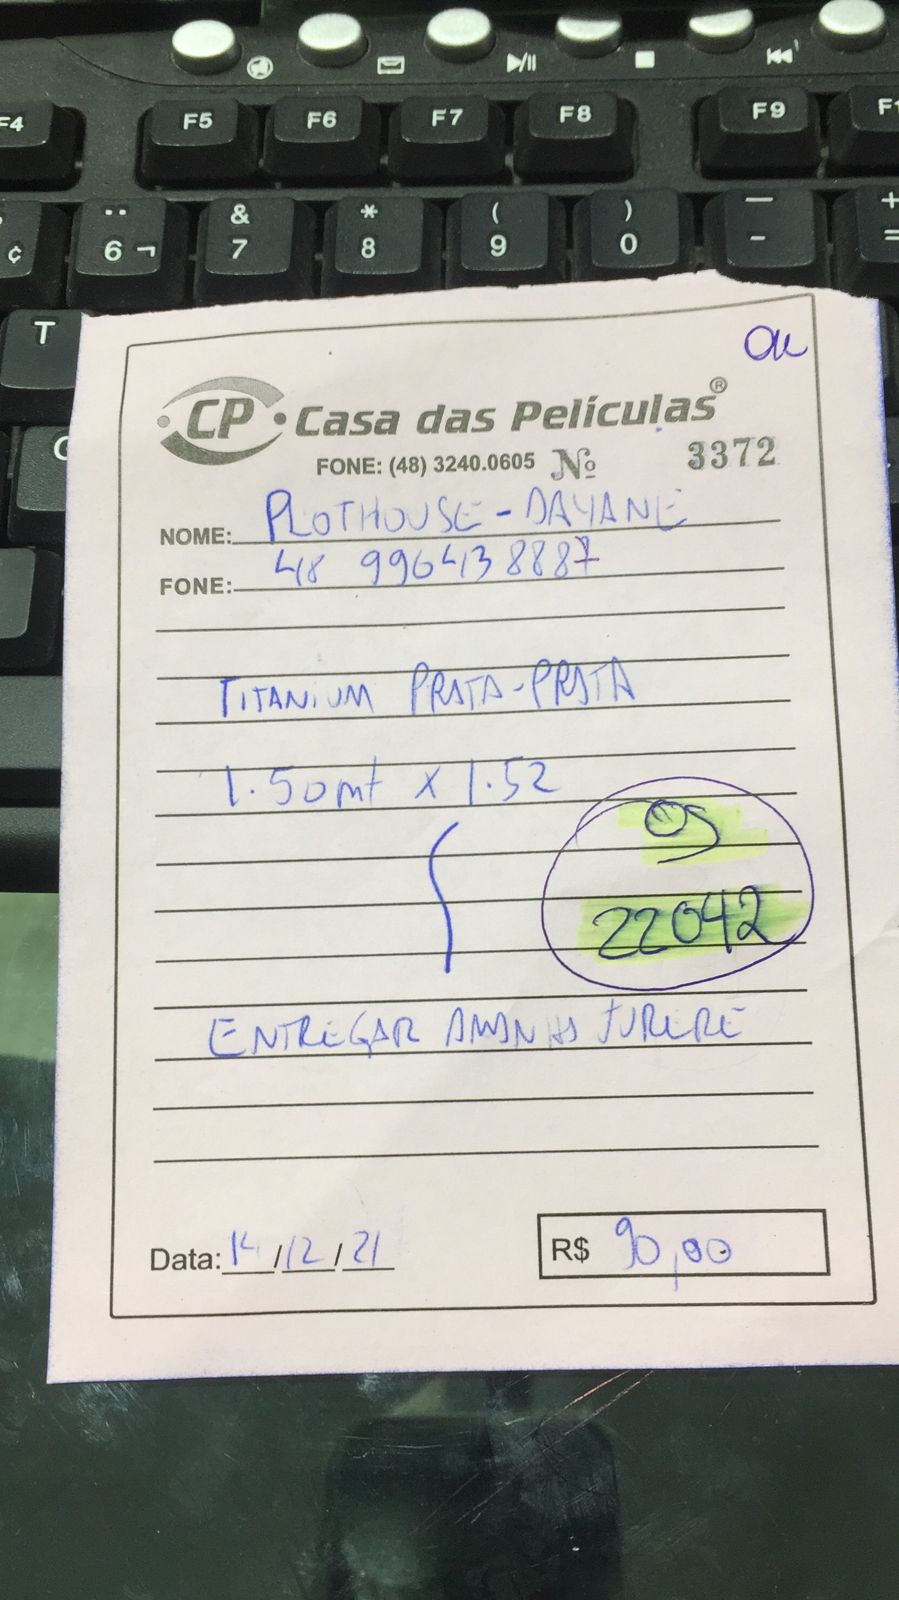 F4 F5 F6 F7 F8 F9 F1
¢ 6 ¬ & 7 * 8 ( 9 ) 0 — - + =
T
OK
CP Casa das Películas ®
FONE: (48) 3240.0605 Nº 3372
NOME: PLOTHOUSE - DAYANE
FONE: 48 996438887
TITANIUM PRATA-PRATA
1.50mt x 1.52
OS
22042
ENTREGAR AMANHA JURERE
Data: 14/12/21 R$ 90,00